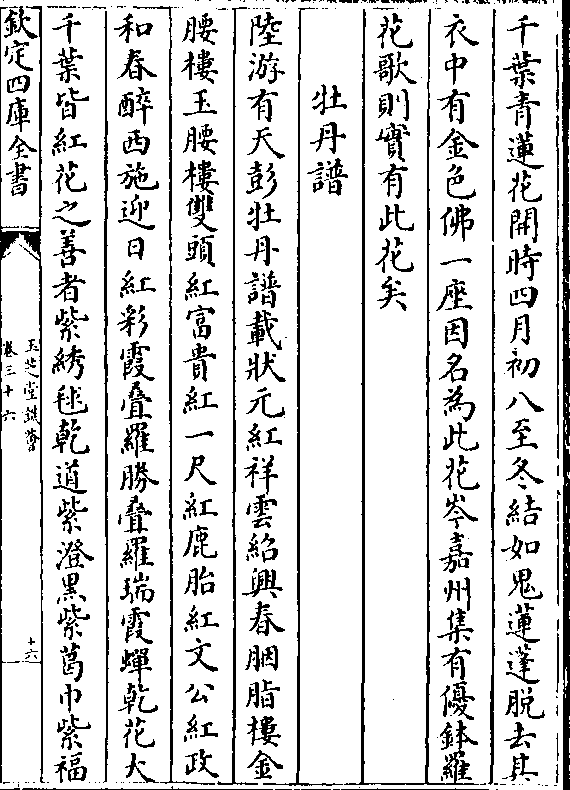 千葉青蓮花開時四月初八至冬結如鬼蓮蓬脱去其
衣中有金色佛一座因名為此花岑嘉州集有優鉢羅
花歌則實有此花矣
牡丹譜
陸游有天彭牡丹譜載狀元紅祥雲紹興春胭脂樓金
腰樓玉腰樓雙頭紅富貴紅一尺紅鹿胎紅文公紅政
和春醉西施迎日紅彩霞叠羅勝叠羅瑞霞蟬乾花大
千葉皆紅花之善者紫綉毬乾道紫澄黑紫葛巾紫福
欽定四庫全書
玉芝堂談薈
卷三十六
十六